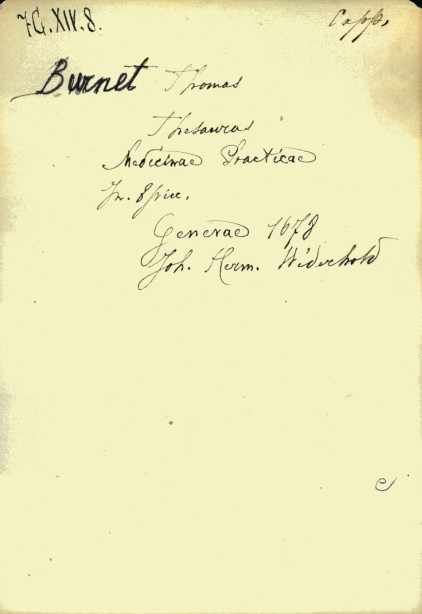 7G.XIV.8.
Capp.
Burnet Thomas
Thesaurus
Medicinae Practicae
Genevae 1678
Joh. Herm. Widerhold